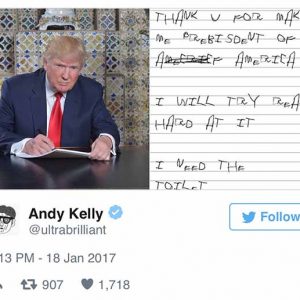 THANK U FOR MAK
ME PREBISDENT OF
AMERICA
I WILL TRY REA
HARD AT IT
I NEED THE
TOILET
Andy Kelly
@ultrabrilliant
Follow
13 PM - 18 Jan 2017
907 1,718